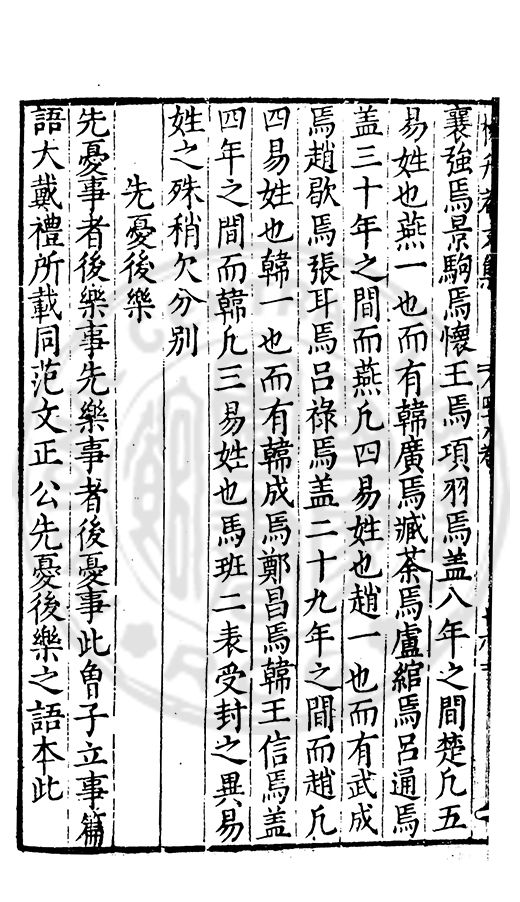 襄強焉景駒焉懷王焉項羽焉盖八年之間楚凢五
易姓也燕一也而有韓廣焉臧荼焉盧綰焉呂通焉
盖三十年之間而燕凢四易姓也趙一也而有武成
焉趙歇焉張耳焉呂祿焉盖二十九年之間而趙凢
四易姓也韓一也而有韓成焉鄭昌焉韓王信焉盖
四年之間而韓凢三易姓也馬班二表受封之異易
姓之殊稍欠分別
先憂後樂
先憂事者後樂事先樂事者後憂事此曾子立事篇
語大戴禮所載同范文正公先憂後樂之語本此